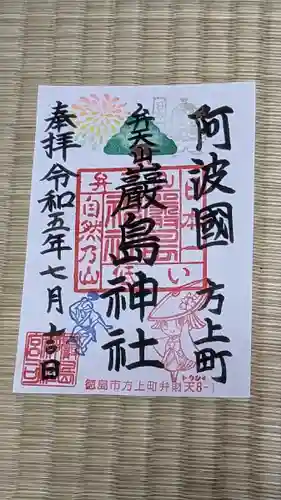 阿波國 方上町
弁天山
嚴島神社
奉拝 令和五年七月十七日
日本一
低い
弁
自然乃山
徳島市方上町弁財天8-1